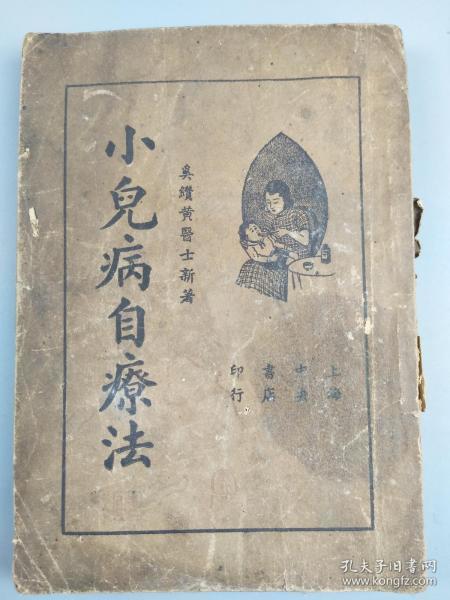 上海
中央
書店
印行
吳鑽黃醫士新著
小兒病自療法
孔夫子旧书网
www.kongfz.com